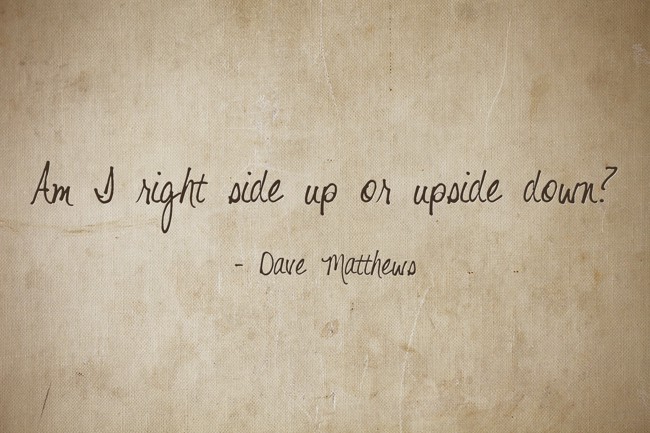 Am I right side up or upside down?
- Dave Matthews